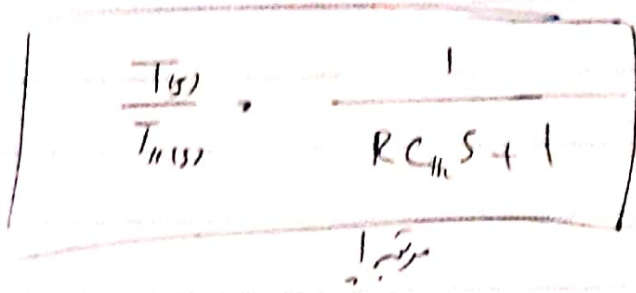 T(s) / T_in(s) = 1 / (R C_th S + 1)
مرتبه 1